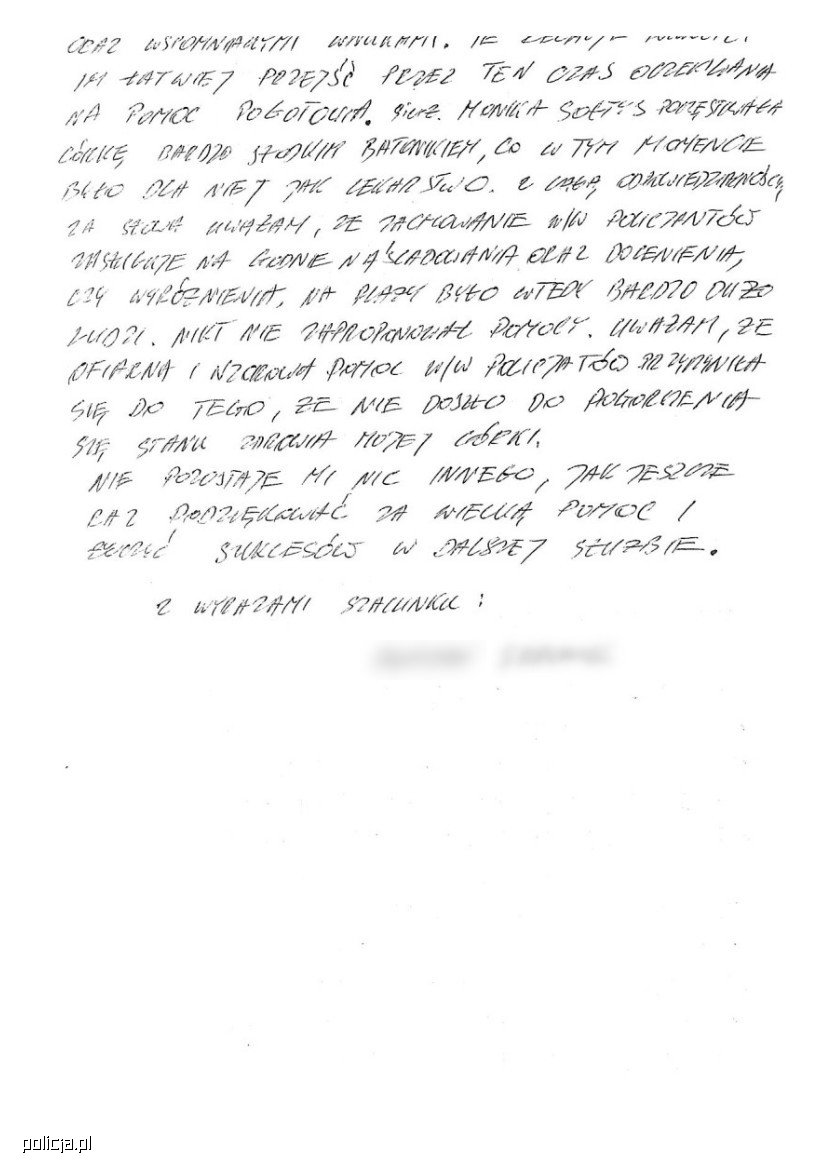 ORAZ WSPOMNIANYMI WNUKAMI. TE
IM ŁATWIEJ PRZEJŚĆ PRZEZ TEN CZAS OCZEKIWANIA
NA POMOC POGOTOWIA. sierż. MONIKA SOŁTYS POCZĘSTOWAŁA
CÓRKĘ BARDZO SŁODKIM BATONIKIEM, CO W TYM MOMENCIE
BYŁO DLA NIEJ JAK LEKARSTWO. Z CAŁĄ ODPOWIEDZIALNOŚCIĄ
ZA SŁOWA UWAŻAM, ŻE ZACHOWANIE W/W POLICJANTÓW
ZASŁUGUJE NA GODNE NAŚLADOWANIA ORAZ DOCENIENIA,
CZY WYRÓŻNIENIA. NA PLAŻY BYŁO WTEDY BARDZO DUŻO
LUDZI. NIKT NIE ZAPROPONOWAŁ POMOCY. UWAŻAM, ŻE
OFIARNA I WZOROWA POMOC W/W POLICJATÓW PRZYCZYNIŁA
SIĘ DO TEGO, ŻE NIE DOSZŁO DO POGORSZENIA
SIĘ STANU ZDROWIA MOJEJ CÓRKI.
NIE POZOSTAJE MI NIC INNEGO, JAK JESZCZE
RAZ PODZIĘKOWAĆ ZA WIELKĄ POMOC I
ŻYCZYĆ SUKCESÓW W DALSZEJ SŁUŻBIE.
Z WYRAZAMI SZACUNKU:
policja.pl